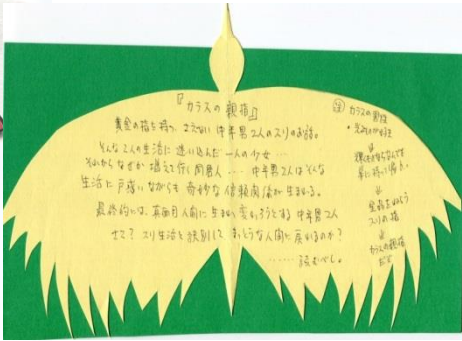 『カラスの親指』
黄金の指を持つ、さえない中年男2人のスリのお話。
そんな2人の生活に迷い込んだ一人の少女…
それからなぜか増えて行く同居人…。中年男2人はそんな
生活に戸惑いながらも奇妙な信頼関係が生まれる。
最終的には、真面目人間に生まれ変わろうとする中年男2人
さて?スリ生活と決別して、まっとうな人間に戻れるのか?
……読むべし。
カラスの親指
・光ものが好き
↓
↓
スリの指
↓
カラスの親指
だと